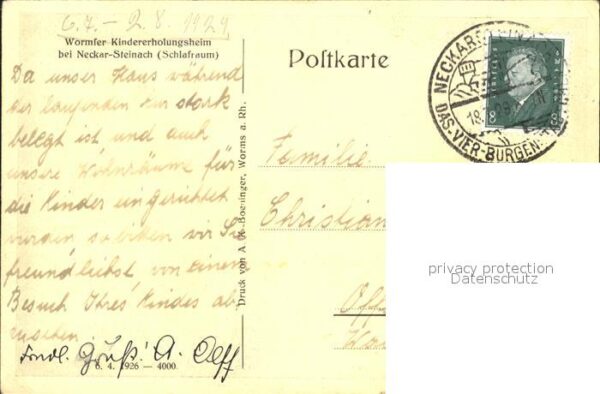 6.7. – 2.8. 1929
Wormser Kindererholungsheim
bei Neckar-Steinach (Schlafraum)
Da unser Haus während
der laufenden Kur stark
belegt ist und auch
unsere Wohnräume für
die Kinder eingerichtet
wurden so bitten wir Sie
freundlichst von einem
Besuch Ihres Kindes ab
zusehen.
Frndl. Gruß! A.
6. 4. 1926 — 4000.
Druck von A. K. Boeninger, Worms a. Rh.
Postkarte
NECKARSTEINACH
DAS-VIER-BURGEN
18
8 8
Familie
Christian
privacy protection
Datenschutz